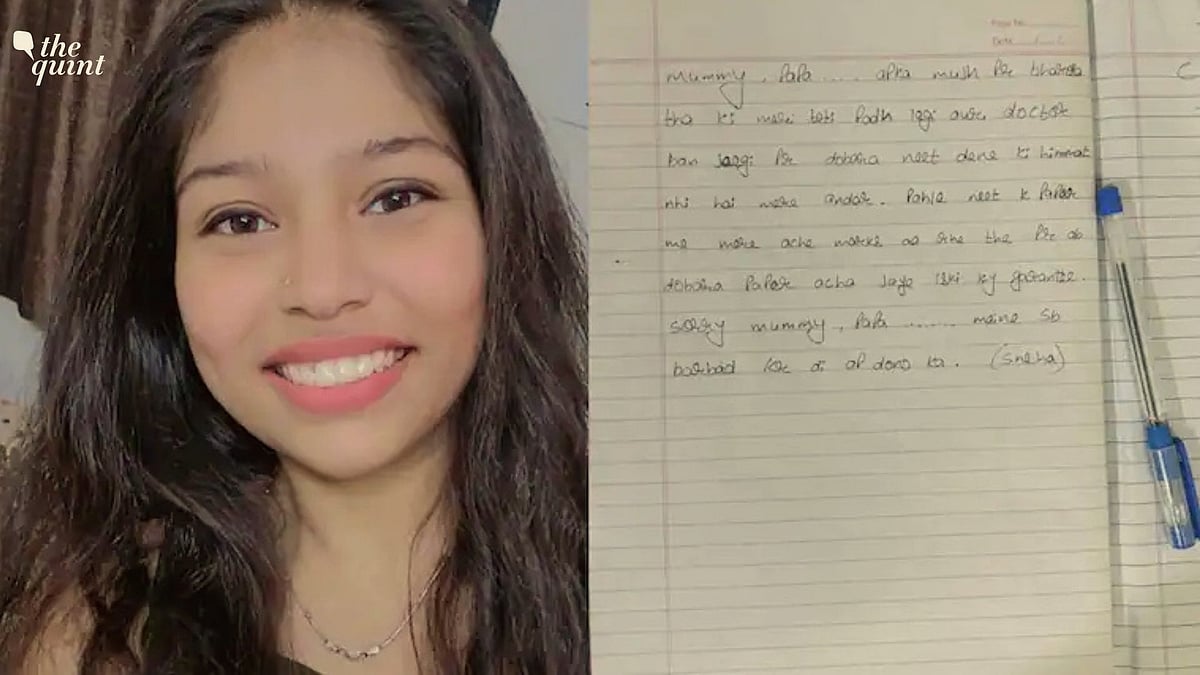 the
quint
Page No.
Date
Mummy, Papa ..... apka mujh Per bharosa
tha ki meri beti Padh legi aur doctor
ban jaegi Per dobara neet dene ki himmat
nhi hai mere andar. Pahle neet k Paper
me mere ache marks aa rhe the Per ab
dobara Paper acha jaye iski ky garantee.
sorry mummy, Papa ....... maine sb
barbad kr di ap dono ka. (Sneha)
C